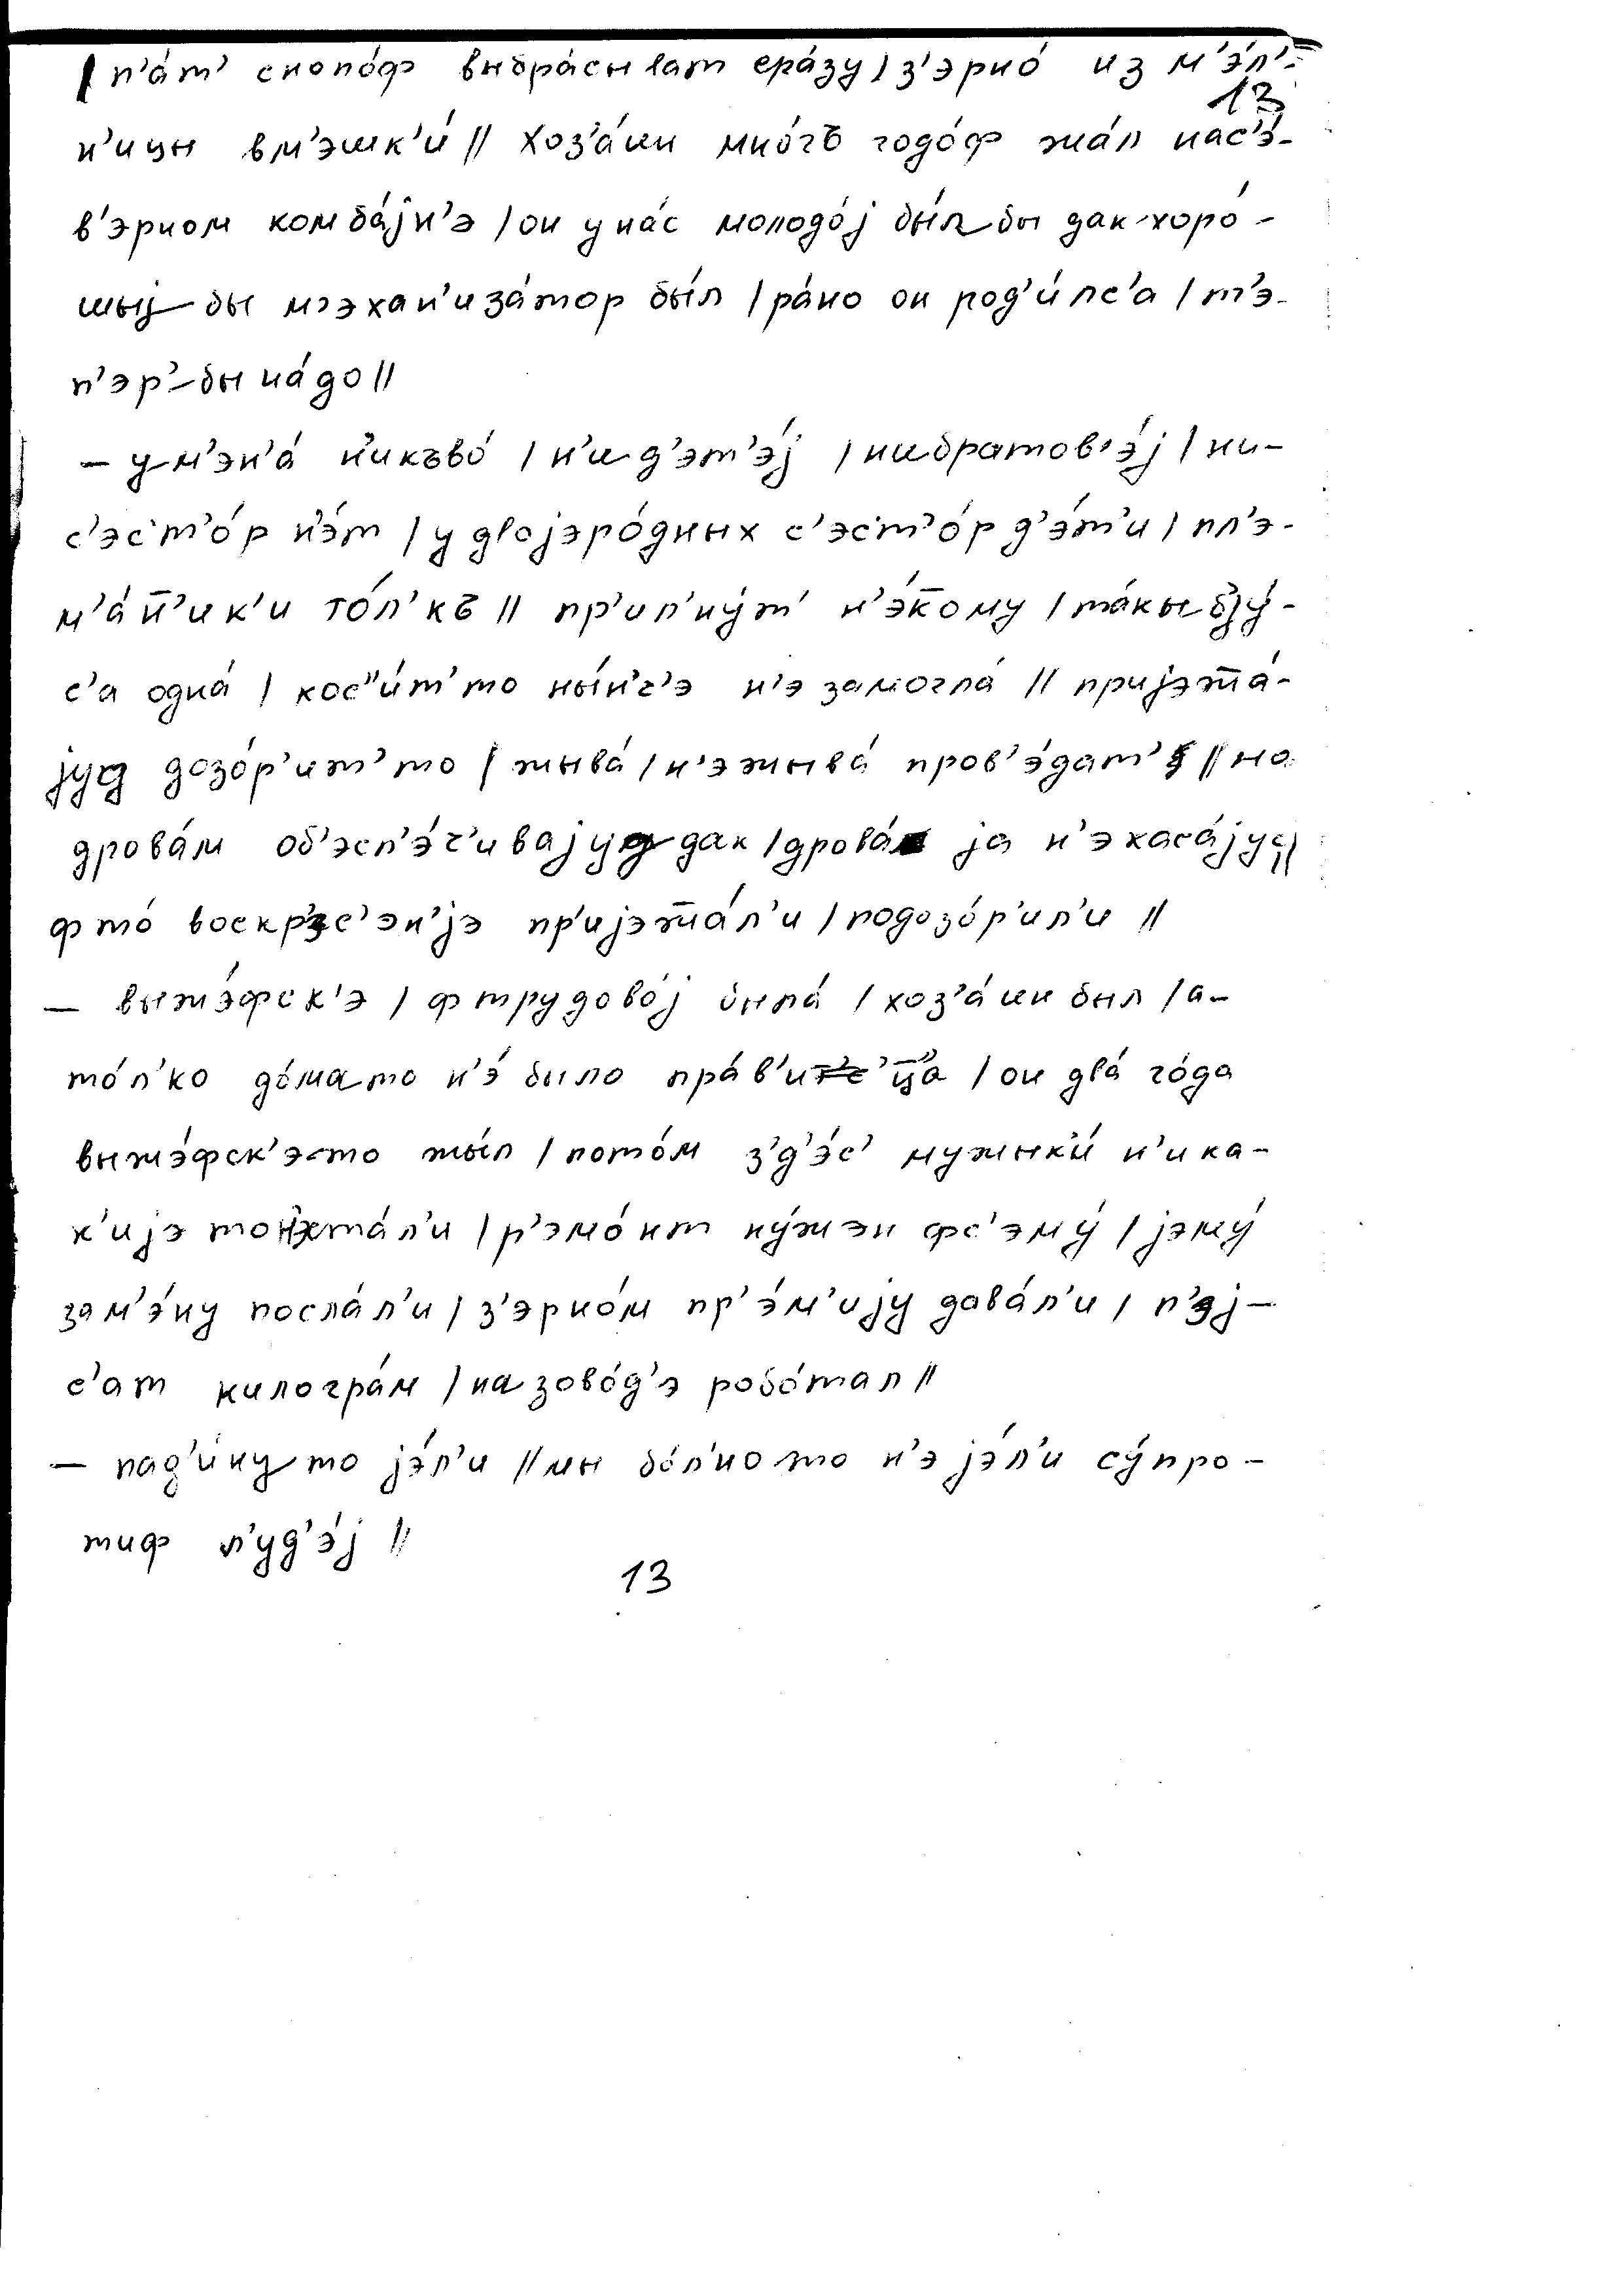 | п’а́т’ снопо́ф выбра́сыват сра́зу | з’эрно́ из м’э́л’-
13
н’ицы вм’эшк’и́ || хоз’а́ин мно́гъ годо́ф жа́л нас’э́-
в’эрном комба́јн’э | он у на́с молодо́ј бы́л бы дак хоро́-
шыј бы м’эхан’иза́тор бы́л | ра́но он род’и́лс’а | т’э-
п’эр’ бы на́до ||
– ум’эн’а́ н’икъво́ | н’и д’эт’э́ј | нибратов’э́ј | ни-
с’эст’о́р н’э́т | у двојэро́дных с’эст’о́р д’э́т’и | пл’э-
м’а́н̄’ик’и то́л’къ || пр’ил’ну́т’ н’э́кому | та́кы бју́-
с’а одна́ | кос’и́т’то ны́н’г’э н’э замогла́ || пријэжа́-
јуд дозо́р’ит’то | жыва́ | н’эжыва́ пров’э́дат’ || но
дрова́м об’эсп’э́ч’ивајуд дак | дрова́м ја н’экаса́јус ||
фто́ воскр’эс’эн’јэ пр’ијэжа́л’и | подозо́р’ил’и ||
– выжэ́фск’э | ф трудово́ј была́ | хоз’а́ин был | а-
то́л’ко до́мато н’э́ было пра́в’иц̄’а | он два́ го́да
выжэ́фск’э-то жы́л | пото́м з’д’э́с’ мужык’и́ н’ика-
к’ијэ то н’жта́л’и | р’эмо́нт ну́жэн фс’эму́ | јэму́
зам’э́ну посла́л’и | з’эрно́м пр’э́м’ију дава́л’и | п’эј-
с’ат килогра́м | на зово́д’э робо́тал ||
– пад’и́ну то јэ́л’и || мы бо́л’но то н’э јэ́л’и су́про-
тиф л’уд’э́ј ||
13